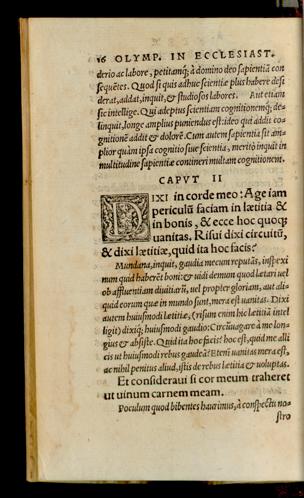 16 OLYMP. IN ECCLESIAST.
derio ac labore, petitamq; à domino deo sapientiã con
sequẽtes. Quod si quis adhuc scientiæ plus habere desi
derat, addat, inquit, & studiosos labores. Aut etiam
sic intellige. Qui adeptus scientiam cognitionemq; de-
linquit, longe amplius puniendus est: ideo qui addit co-
gnitionẽ addit & dolorẽ. Cum autem sapientia sit am-
plior quàm ipsa cognitio siue scientia, meritò inquit in
multitudine sapientiæ contineri multam cognitionem.
CAPVT II
DIXI in corde meo: Age iam
periculũ faciam in lætitia &
in bonis, & ecce hoc quoq;
uanitas. Risui dixi circuitũ,
& dixi lætitiæ, quid ita hoc facis?
Mundana, inquit, gaudia mecum reputãs, inspexi
num quid haberẽt boni: & uidi demum quod lætari uel
ob affluentiam diuitiarũ, uel propter gloriam, aut ali-
quid eorum quæ in mundo sunt, mera est uanitas. Dixi
autem huiusmodi lætitiæ, (risum enim hic lætitiã intel
ligit) dixiq; huiusmodi gaudio: Circũuagare à me lon-
gius & absiste. Quid ita hoc facis? hoc est, quid me alli
cis ut huiusmodi rebus gaudeã? Etenĩ uanitas mera est,
ac nihil penitus aliud, istis de rebus lætitia & uoluptas.
Et consideraui si cor meum traheret
ut uinum carnem meam.
Poculum quod bibentes haurimus, à conspectu no-
stro